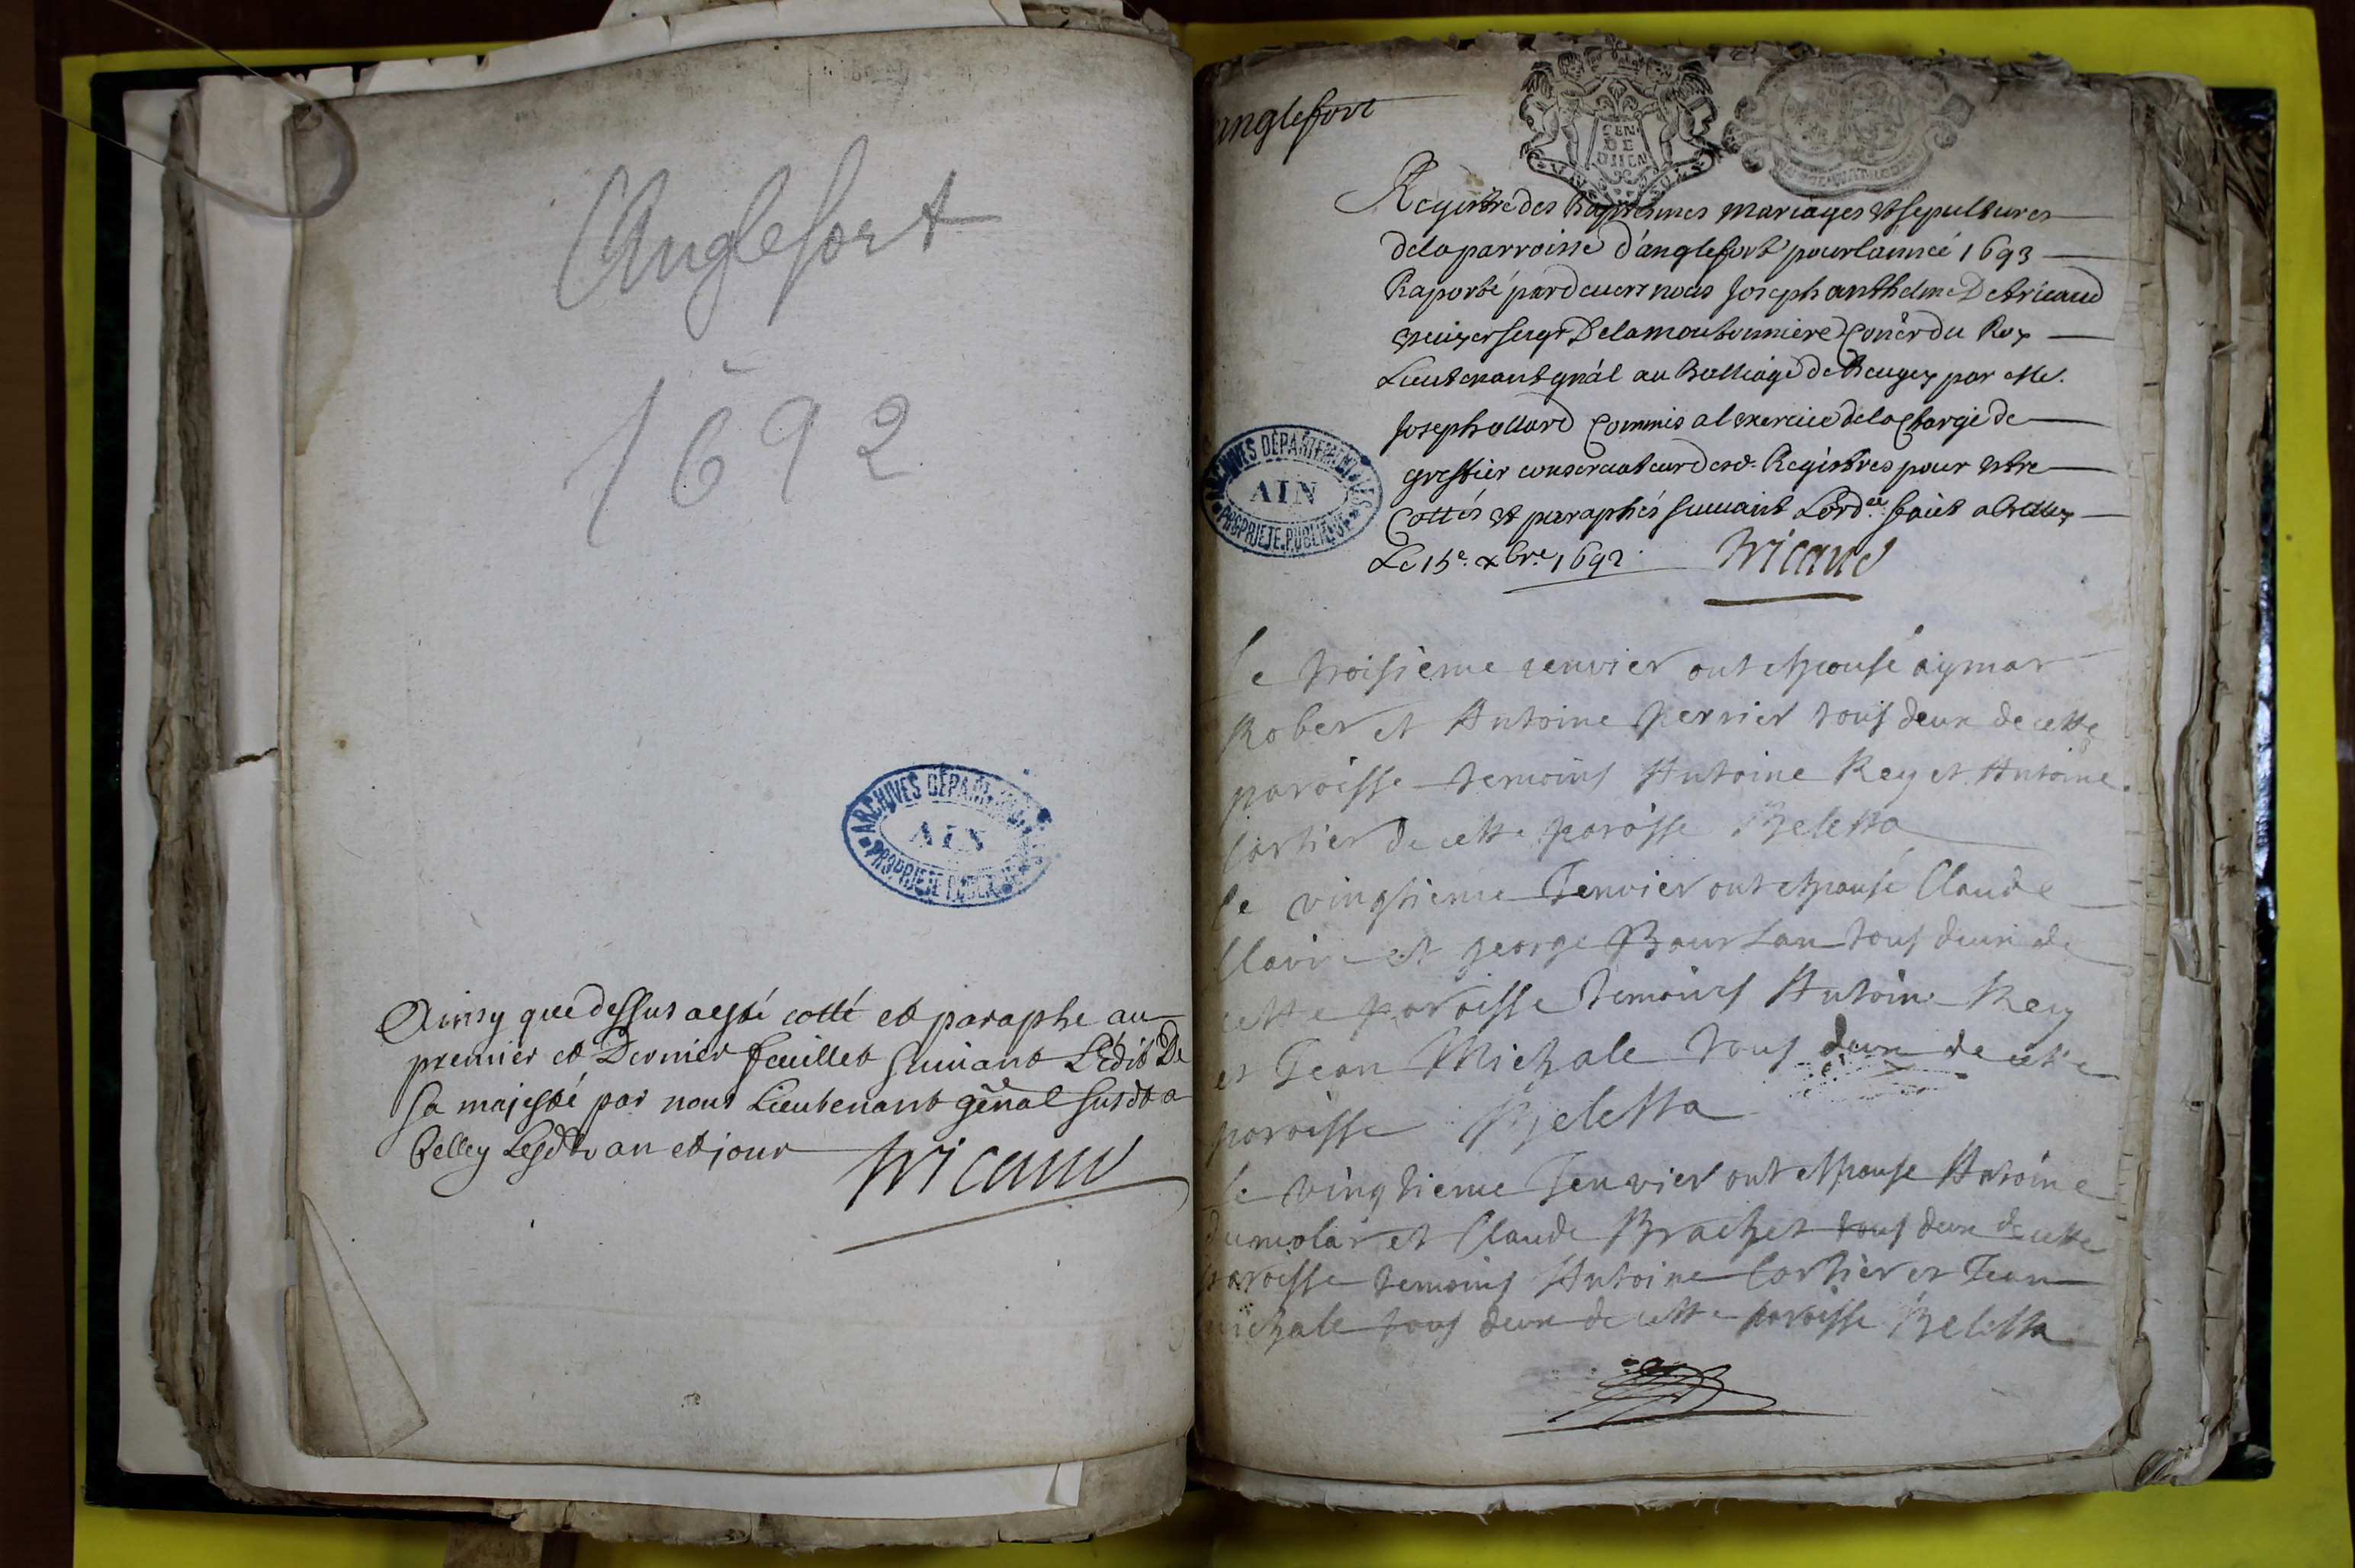 Anglefort
1692
ARCHIVES DÉPARTEMENTALES
AIN
PROPRIETE PUBLIQUE
Ainsy que dessus a esté cotté et paraphe au
premier et Dernier feuillet suivant L'Edit De
sa majesté par nous Lieutenant gñal susdt a
Belley Lesdt an et jour
Tricaud
anglefort
GEN
DE
DIION
Registre des Baptesmes mariages et sepultures
de la parroisse d'anglefort pour l'année 1693
Raporté pardevers nous Joseph anthelme De tricaud
escuyer seigr De la moutonniere Coner du Roy
Lieutenant gnâl au Balliage de Beugey par Me.
Joseph allard Commis a l'exercice de la Charge de
greffier conservateur desd. Registres pour estre
Cottés et paraphés suivant L'ord.ce fait a Belley
Le 15e. xbre. 1692.
Tricaud
ARCHIVES DÉPARTEMENTALES
AIN
PROPRIETE PUBLIQUE
le troisieme jenvier ont espousé aymar
Rober et Antoine perrier tous deux de cette
paroisse temoins Antoine Rey et Antoine
Cortier de cette paroisse
le vingtieme Jenvier ont espousé Claude
et george tous deux de
cette paroisse temoins Antoine Rey
et Jean Michale tous deux de cette
paroisse
le vingtieme Jenvier ont espouse Antoine
dumolar et Claude Brachet tous deux de cette
paroisse temoins Antoine Cortier et Jean
michale tous deux de cette paroisse